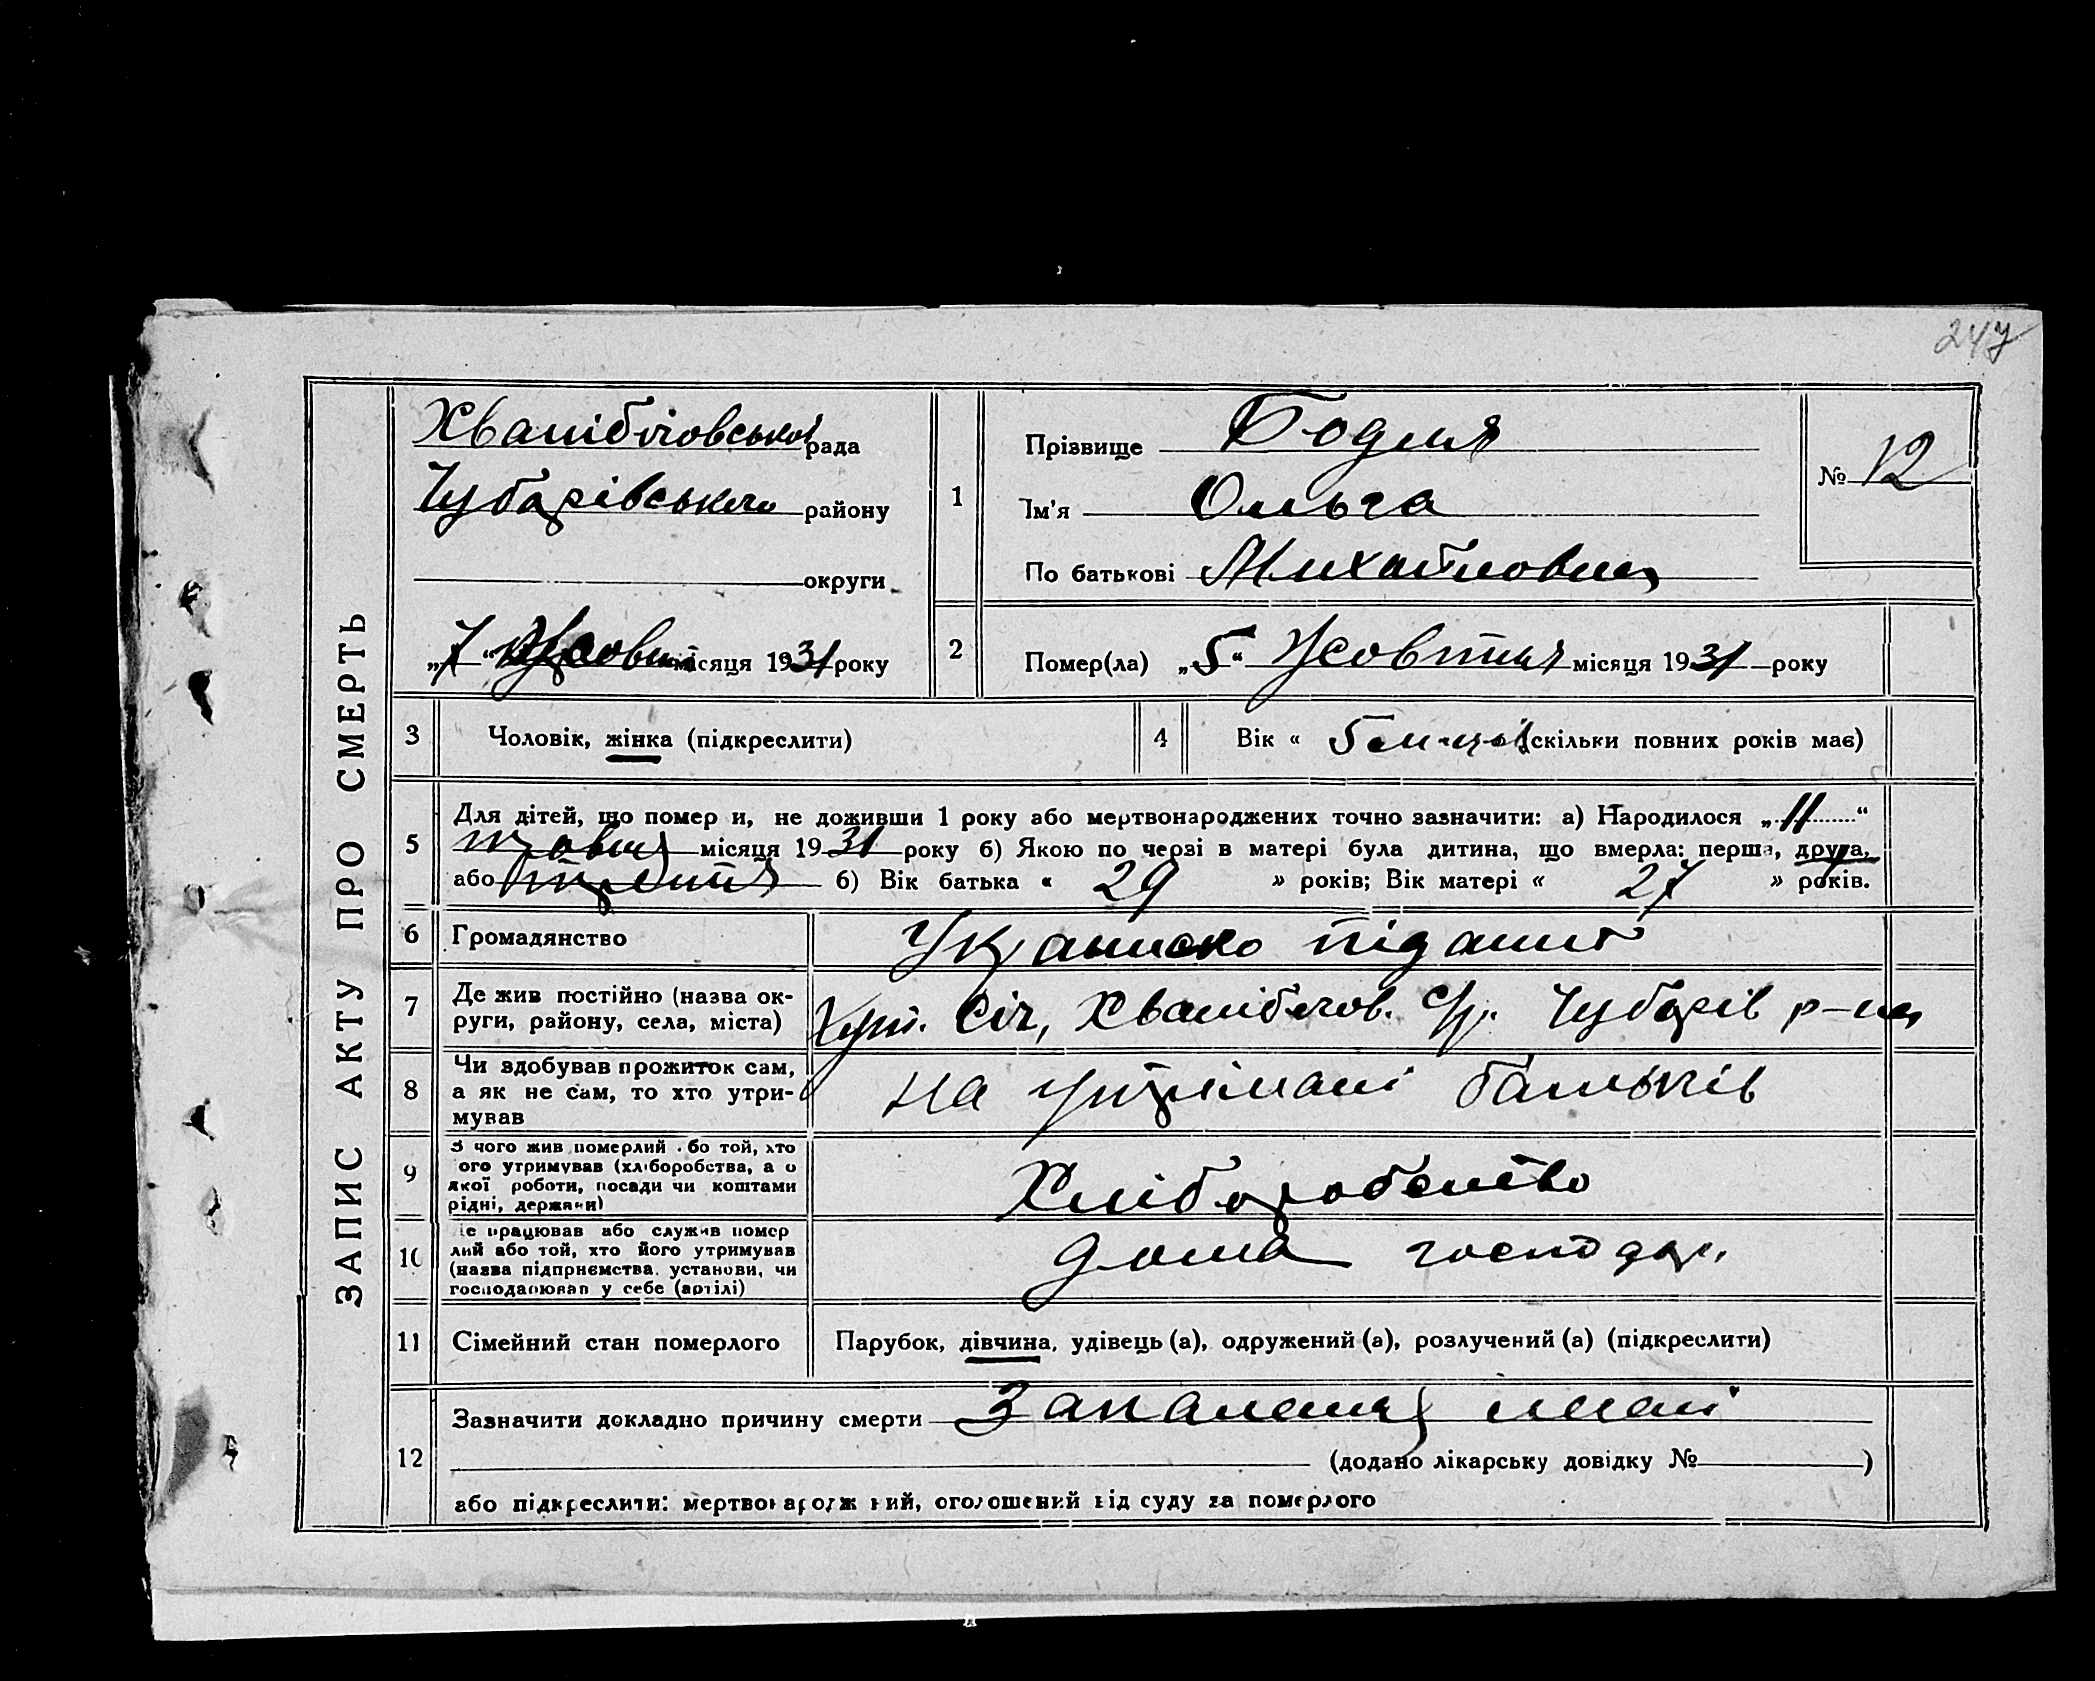 247
ЗАПИС АКТУ ПРО СМЕРТЬ
рада
Чубарівського району
округи
„7“ Жовтня місяця 1931 року
1
Прізвище Бодня
Ім'я Ольга
По батькові Михайловна
№ 12
2
Помер(ла) „5“ Жовтня місяця 1931 року
3 Чоловік, жінка (підкреслити)
4 Вік « 5 місяців (скільки повних років має)
5 Для дітей, що померли, не доживши 1 року або мертвонароджених точно зазначити: а) Народилося „11“
травня місяця 1931 року б) Якою по черзі в матері була дитина, що вмерла: перша, друга,
або третя б) Вік батька « 29 » років; Вік матері « 27 » років.
6 Громадянство підани
7 Де жив постійно (назва ок-
руги, району, села, міста) Хут. Січ, С/р. Чубарів р-на
8 Чи здобував прожиток сам,
а як не сам, то хто утри-
мував
на утрімані батьків
9 З чого жив померлий або той, хто
його утримував (хліборобства, а о
якої роботи, посади чи коштами
рідні, держави)
Хліборобство
10 Де працював або служив помер
лий або той, хто його утримував
(назва підприємства, установи, чи
господарював у себе (артілі)
дома господар.
11 Сімейний стан померлого Парубок, дівчина, удівець (а), одружений (а), розлучений (а) (підкреслити)
12
Зазначити докладно причину смерти Запалення
(додано лікарську довідку № )
або підкреслити: мертвонароджений, оголошений від суду за померлого